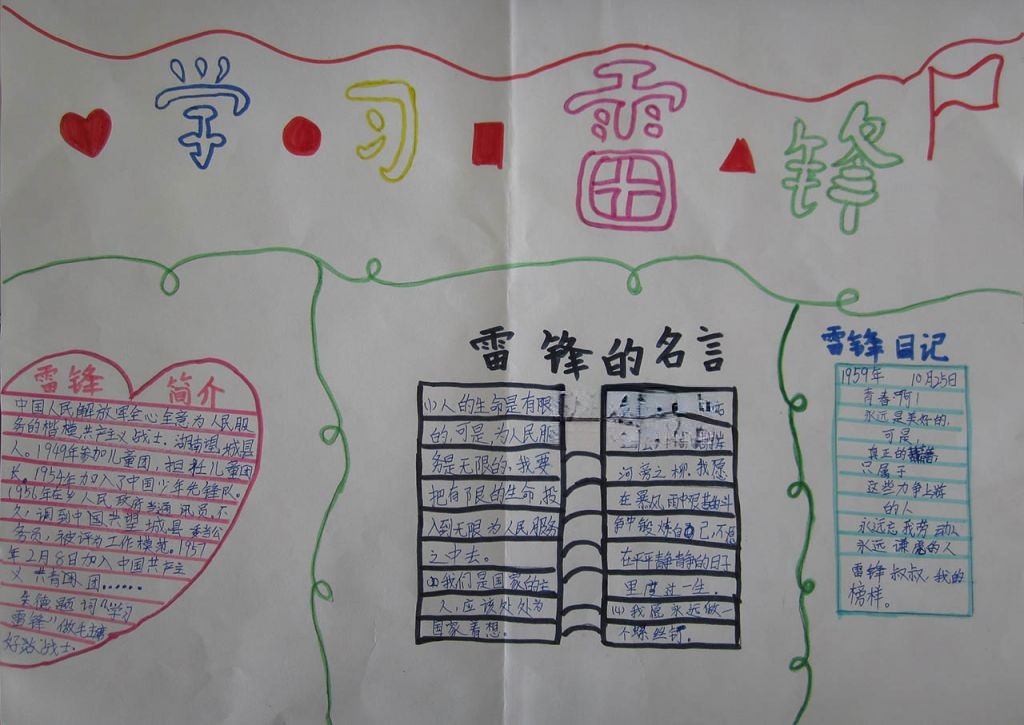 学习雷锋
雷锋 简介
中国人民解放军全心全意为人民服
务的楷模共产主义战士,湖南望城县
人。1949年参加儿童团,担任儿童团
长。1954年加入了中国少年先锋队。
1956年在乡人民政府当通讯员,不
久,调到中国共望城县委当公
务员,被评为工作模范。1957
年2月8日加入中国共产主
义共青团、团……
朱德题词“学习
雷锋”做毛主席
好战士.
雷锋的名言
(1)人的生命是有限
的,可是,为人民服
务是无限的,我要
把有限的生命,投
入到无限为人民服务
之中去。
我们是国家的主
人,应该处处为
国家着想。
河旁之柳,我愿
在暴风雨中艰苦奋斗
争中锻炼自己,不愿
在平平静静的日子
里度过一生.
(4)我愿永远做一
个螺丝钉.
雷锋日记
1959年 10月25日
青春啊!
永远是美好的,
可是,
真正的
只属于
这些力争上游
的人
永远忘我劳动人
永远谦虚的人
雷锋叔叔,我的
榜样。